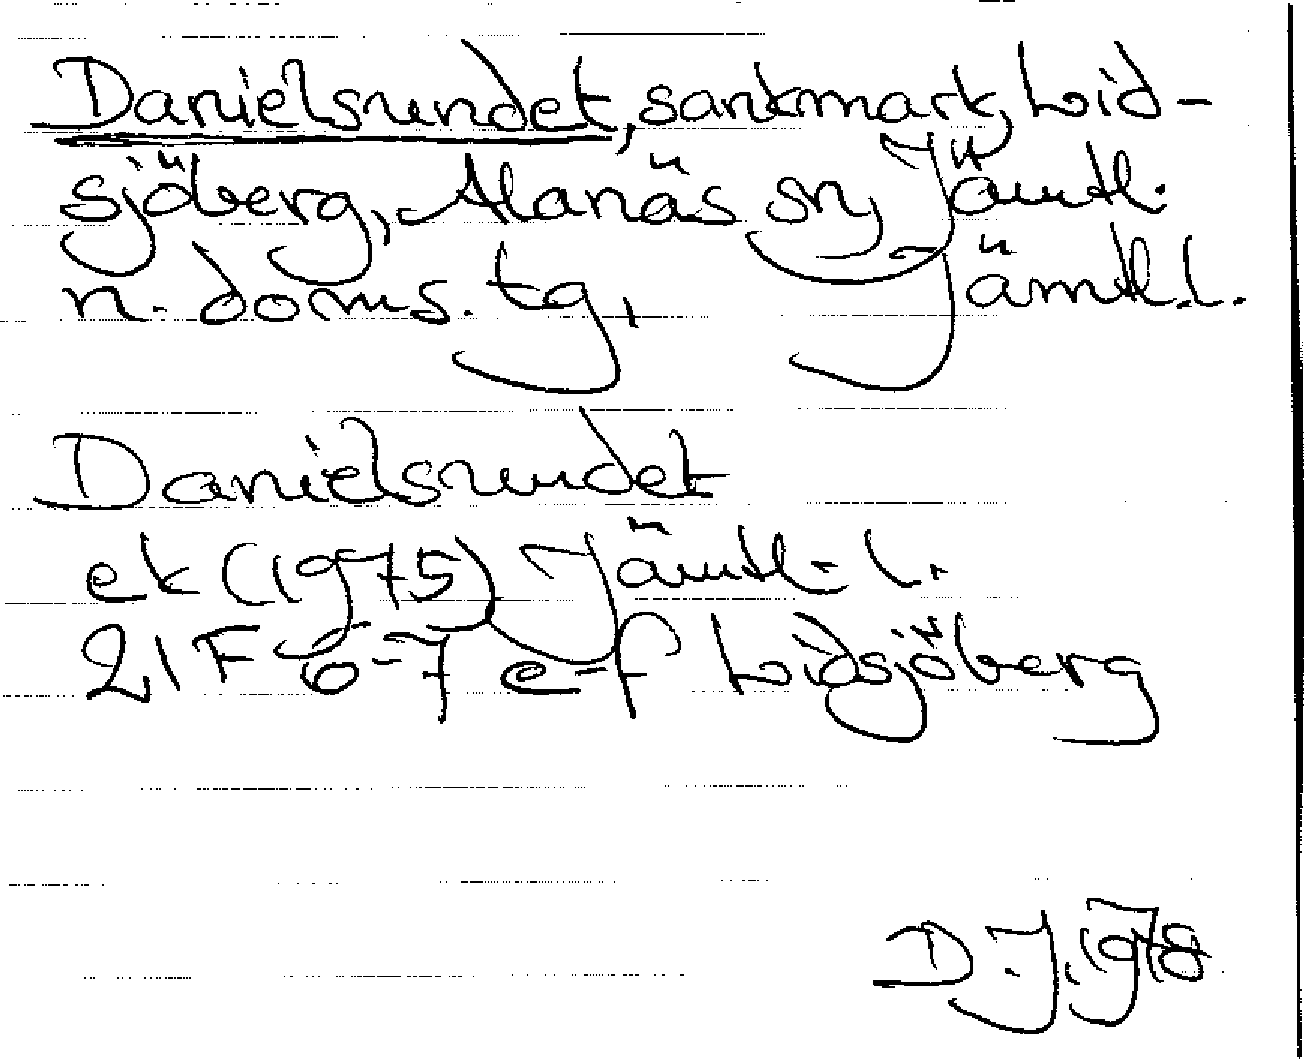 Danielsrundet, sankmark, Lid-
sjöberg, Alanäs sn, Jämtl.
n. doms. tg, Jämtl.l.
Danielsrundet
ek (1975) Jämtl. l.
21F 6-7 e-f Lidsjöberg
D.J. 1978